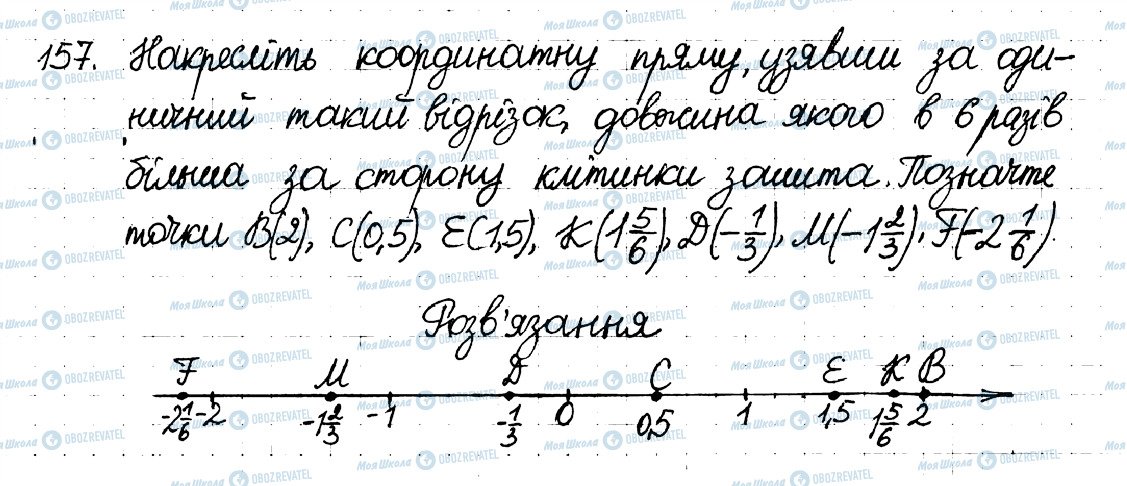 157. Накресліть координатну пряму, узявши за оди-
ничний такий відрізок, довжина якого в 6 разів
більша за сторону клітинки зошита. Позначте
точки B(2), C(0,5), E(1,5), K(1 5/6), D(-1/3), M(-1 2/3), F(-2 1/6).
Розв'язання
F M D C E K B
-2 1/6 -2 -1 2/3 -1 -1/3 0 0,5 1 1,5 1 5/6 2